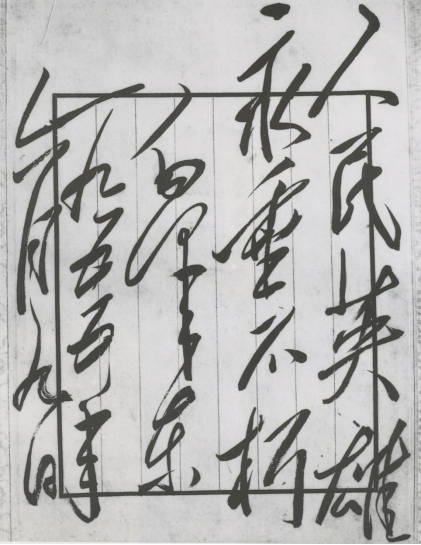 人民英雄
永垂不朽
一九五五年
六月九日